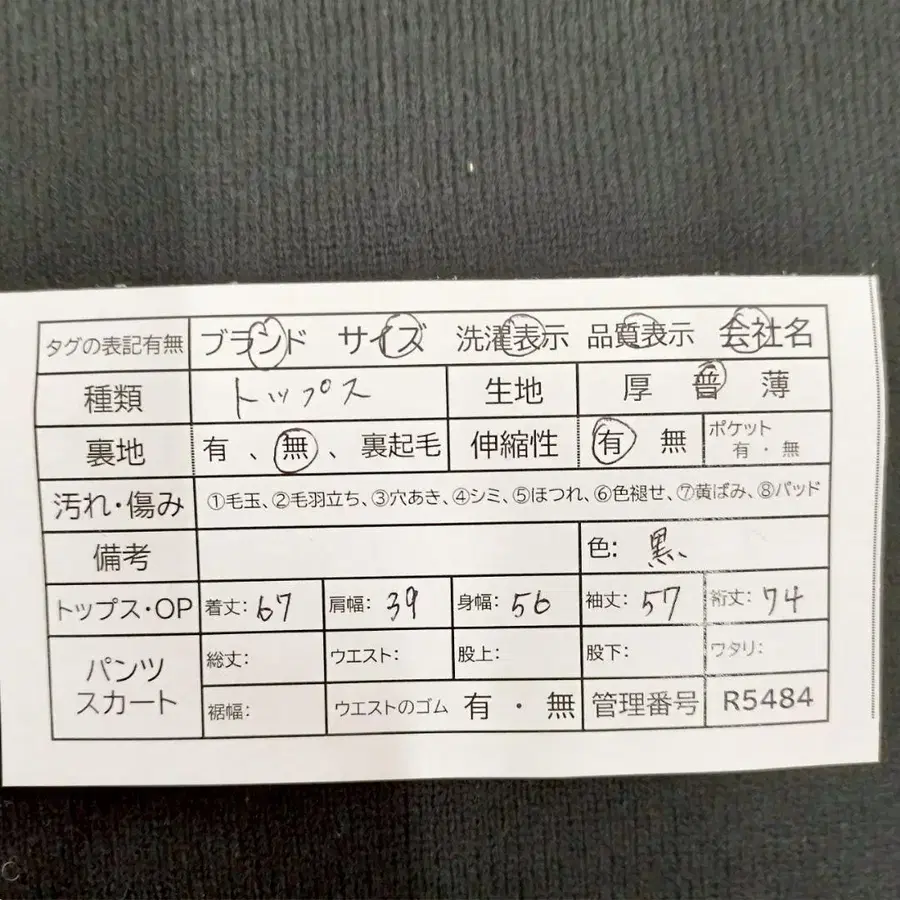 タグの表記有無 ブランド サイズ 洗濯表示 品質表示 会社名
種類 トップス 生地 厚 普 薄
裏地 有 、 無 、 裏起毛 伸縮性 有 無 ポケット 有 ・ 無
汚れ・傷み ①毛玉、②毛羽立ち、③穴あき、④シミ、⑤ほつれ、⑥色褪せ、⑦黄ばみ、⑧パッド
備考 色: 黒
トップス・OP 着丈: 67 肩幅: 39 身幅: 56 袖丈: 57 裄丈: 74
パンツ スカート 総丈: ウエスト: 股上: 股下: ワタリ:
裾幅: ウエストのゴム 有 ・ 無 管理番号 R5484